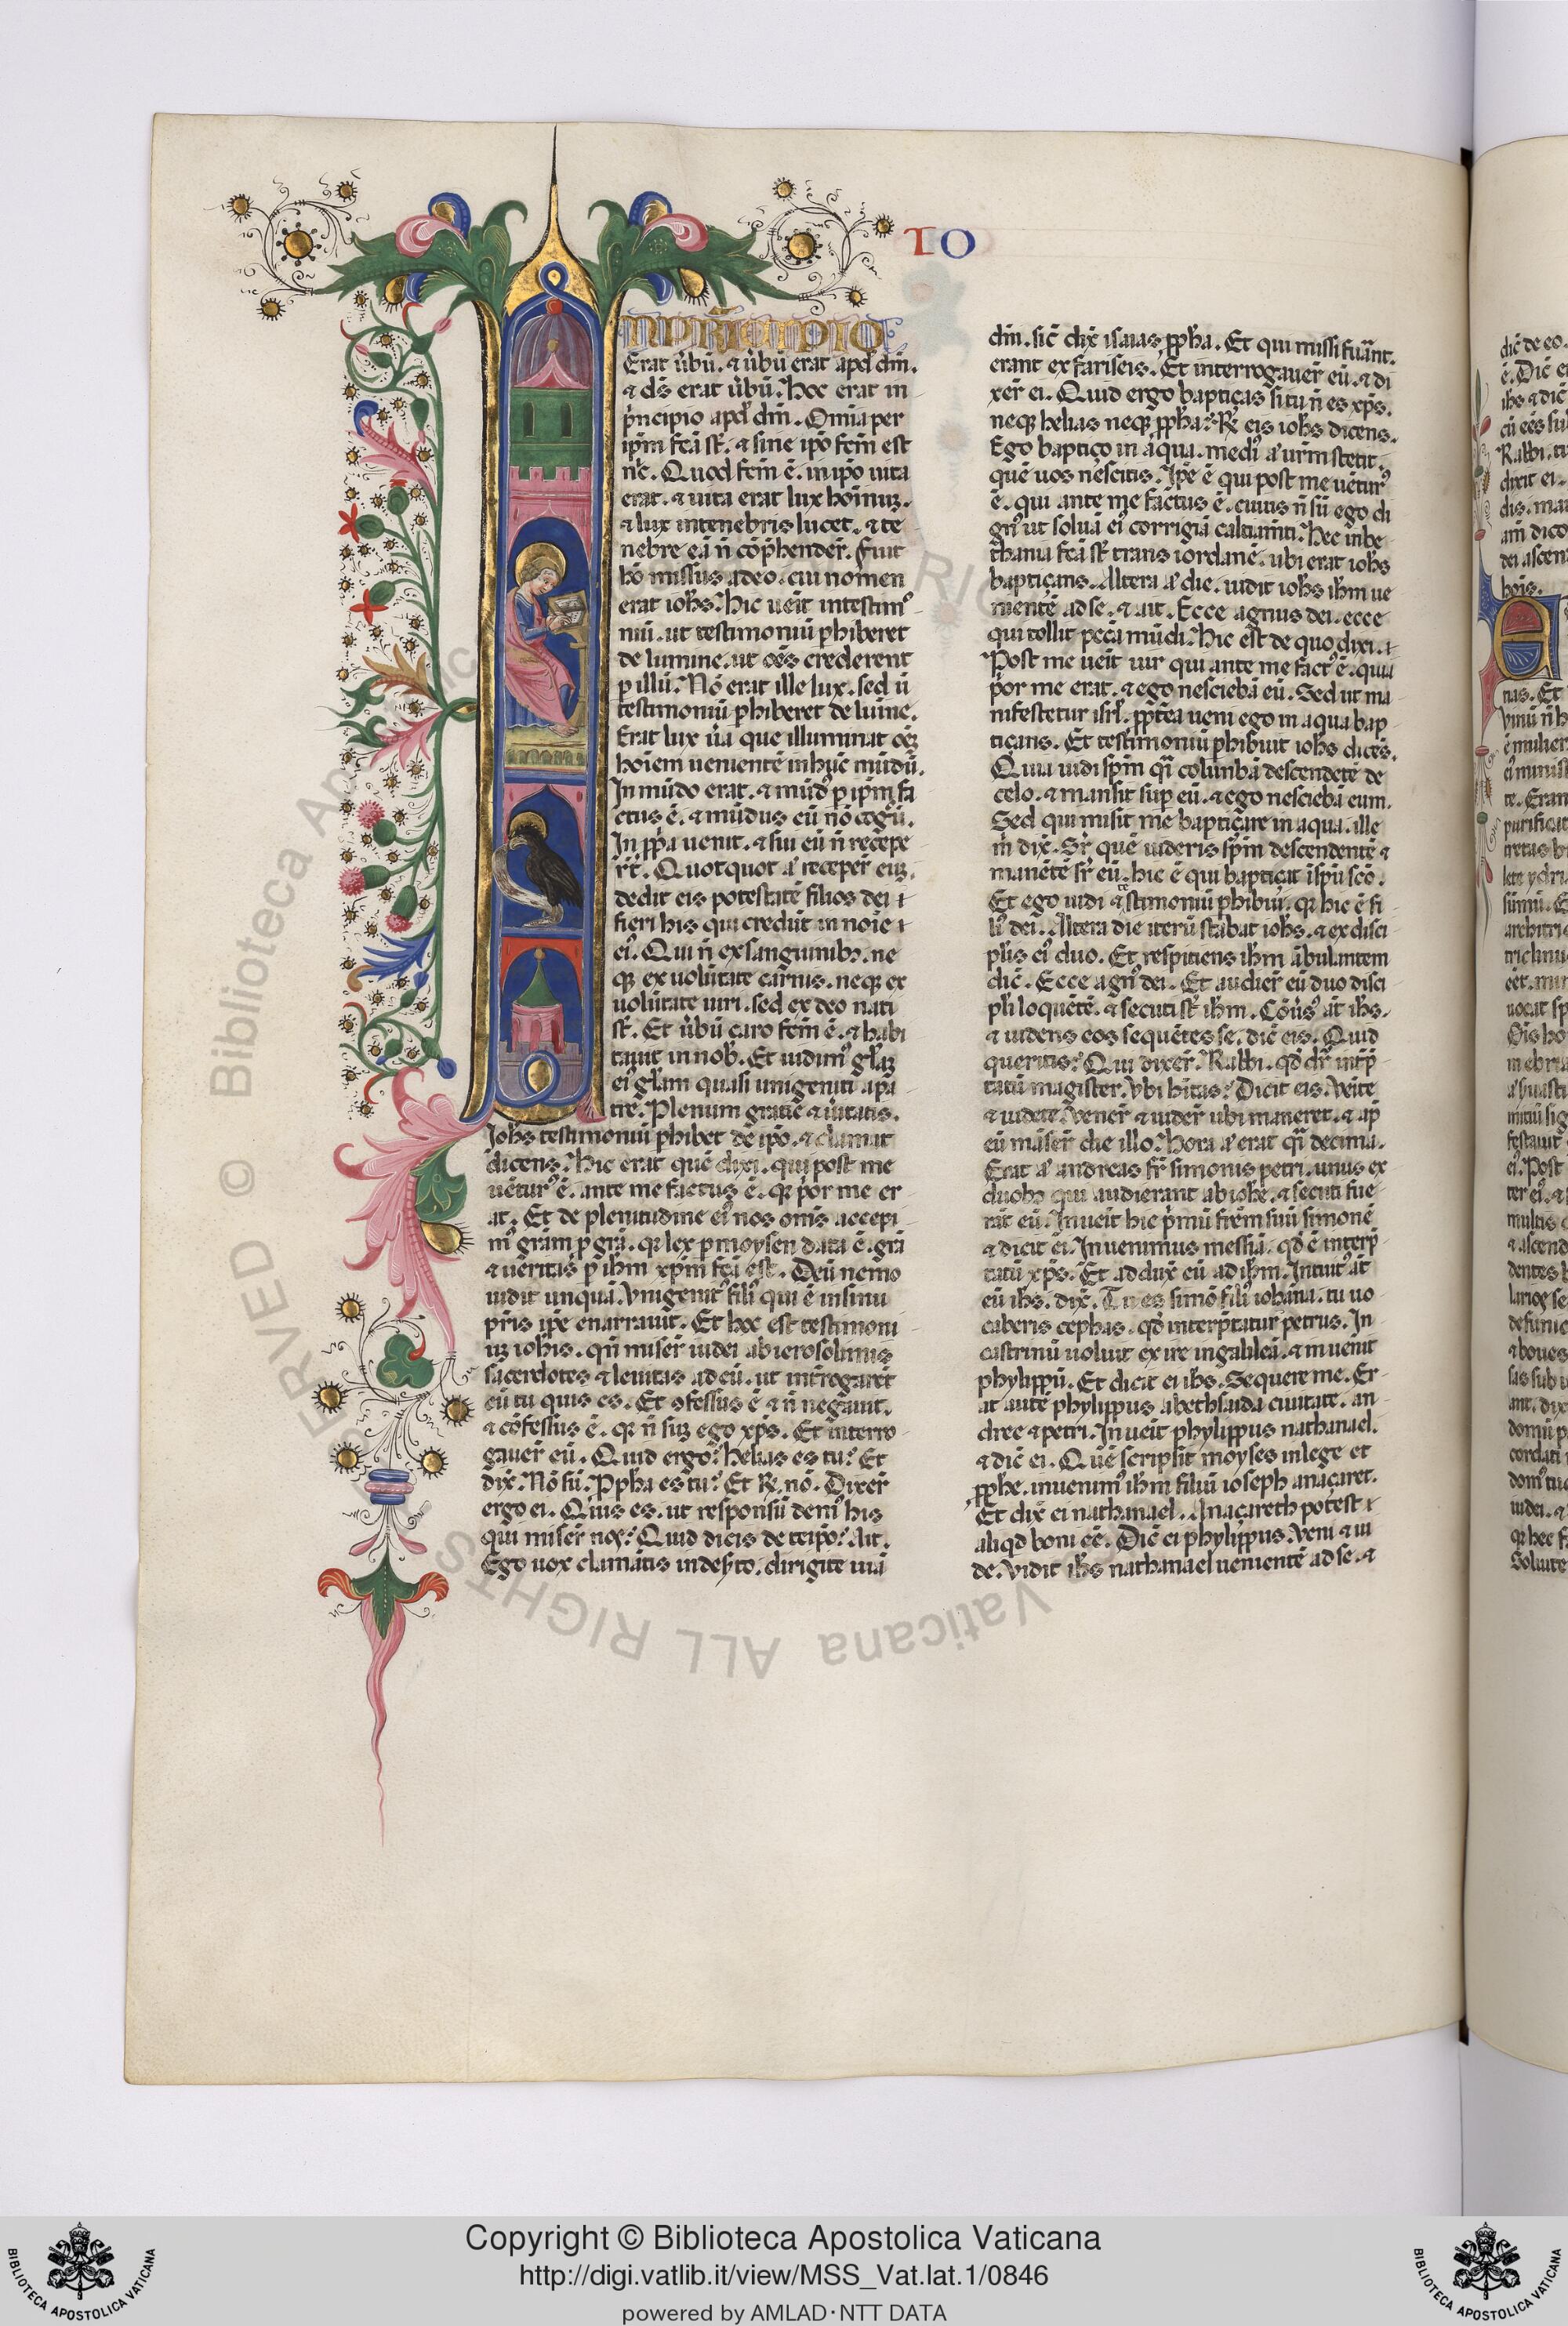 IO
IN PRĨCIPIO
Erat ủbũ. ⁊ ủbũ erat apđ dm̃.
⁊ ds̃ erat ủbũ. Hoc erat in
pͥncipio apđ dm̃. Om̃ia per
ip̃m fcã st̃. ⁊ sine ip̃o fcm̃ est
nͥc. Quod fcm̃ ẽ. in ip̃o uita
erat. ⁊ uita erat lux hoĩnuꝫ.
⁊ lux intenebris lucet. ⁊ te
nebre eã ñ cõpͥhender̃. Fuit
hõ missus adeo. cui nomen
erat ioh̃s. Hic uẽit intestimꝰ
niũ. ut testimoniũ ꝑhiberet
de lumine. ut oẽs crederent
ꝑ illũ. Nõ erat ille lux. sed ũ
testimoniũ ꝑhiberet de luĩne.
Erat lux ủa que illuminat oẽꝫ
hoĩem uenientẽ inhũc mũdũ.
In mũdo erat. ⁊ mũdꝰ ꝑ ip̃m fa
ctus ẽ. ⁊ mũdus eũ nõ cogͦũ.
In ꝓp̃a uenit. ⁊ sui eũ ñ recepe
rt̃. Quotquot aͧ receper̃ euꝫ.
dedit eis potestatẽ filios dei
fieri his qui credũt in noĩe
eiꝰ. Qui ñ ex sanguinibꝫ. ne
qꝫ ex uolũtate carnis. neqꝫ ex
uolũtate uiri. sed ex deo nati
st̃. Et ủbũ caro fcm̃ ẽ. ⁊ habi
tauit in nob̃. Et uidimꝰ gl̃aꝫ
eiꝰ gl̃am quasi unigeniti apa
tre. Plenum gratie ⁊ ủitatis.
Ioh̃s testimoniũ ꝑhibet de ip̃o. ⁊ clamat
dicens. Hic erat quẽ dixi. qui post me
uẽturꝰ ẽ. ante me factus ẽ. qꝛ pͥor me er
at. Et de plenitudine eiꝰ nos om̃s accepi
mꝰ grãm ꝑ grã. qꝛ lex ꝑ moysen data ẽ. grã
⁊ ueritas ꝑ ih̃m xp̃m fcã est. Deũ nemo
uidit unquã. Vnigenitꝰ filiꝰ qui ẽ insinu
pr̃is ip̃e enarrauit. Et hoc est testimoni
uꝫ ioh̃is. qñ miser̃ iudei abierosolimis
sacerdotes ⁊ leuitas ad eũ. ut int̃rogaret
eũ tu quis es. Et ꝯfessus ẽ ⁊ ñ negauit.
⁊ cõfessus ẽ. qꝛ ñ suꝫ ego xp̃s. Et interro
gauer̃ eũ. Quid ergo? helias es tu? Et
dix̃. Nõ sũ. Ppħa es tu? Et R̃. nõ. Dixer̃
ergo ei. Quis es. ut responsũ demꝰ his
qui miser̃ nos? Quid dicis de teip̃o? Ait.
Ego uox clamãtis indesͭto. dirigite uiã
dm̃. sic̃ dix̃ isaias ꝓpħa. Et qui missi fuãnt.
erant ex fariseis. Et interrogauer̃ eũ. ⁊ di
xer̃ ei. Quid ergo baptiças si tu ñ es xp̃s.
neqꝫ helias neqꝫ ꝓpħa? R̃ eis ioh̃s dicens.
Ego baptiço in aqua. mediꝰ aͧ ur̃m stetit.
quẽ uos nescitis. Ip̃e ẽ qui post me uẽturꝰ
ẽ. qui ante me factus ẽ. cuius ñ sũ ego di
gnꝰ ut soluã eiꝰ corrigiã calciam̃ti. Hec inbe
thania fcã st̃ trans iordanẽ. ubi erat ioh̃s
baptiçans. Altera aͧ die. uidit ioh̃s ih̃m ue
nientẽ ad se. ⁊ ait. Ecce agnus dei. ecce
qui tollit pcc̃a mũdi. Hic est de quo dixi.
Post me uẽit uir qui ante me factꝰ ẽ. quia
pͥor me erat. ⁊ ego nesciebã eũ. Sed ut ma
nifestetur isrl̃. ꝓptẽa ueni ego in aqua bap
tiçans. Et testimoniũ ꝑhibuit ioh̃s dicẽs.
Quia uidi sp̃m qͣi columbã descendẽtẽ de
celo. ⁊ mansit suꝑ eũ. ⁊ ego nesciebã eum.
Sed qui misit me baptiçare in aqua. ille
m̃ dix̃. Sͬ quẽ uideris sp̃m descendentẽ ⁊
manẽtẽ sͬ eũ. hic ẽ qui baptiçat ĩ sp̃u scõ.
Et ego uidi ⁊ testimoniũ ꝑhibui. qꝛ hic ẽ fi
liꝰ dei. Altera die iterũ stabat ioh̃s. ⁊ ex disci
pl̃is eiꝰ duo. Et respiciens ih̃m ãbulantem
dic̃. Ecce agnꝰ dei. Et audier̃ eũ duo disci
pl̃i loquẽtẽ. ⁊ secuti st̃ ih̃m. Cõuͥsꝰ aͧt ih̃s.
⁊ uidens eos sequẽtes se. dic̃ eis. Quid
queritis? Qui dixer̃. Rabbi. qđ dr̃ int̃p̃
tatũ magister. Vbi h̃itas? Dicit eis. Venite
⁊ uidete. Vener̃ ⁊ uider̃ ubi maneret. ⁊ ap̃
eũ mãser̃ die illo. Hora aͧ erat qͣi decima.
Erat aͧ andreas fr̃ simonis petri. unus ex
duobꝫ qui audierant ab ioh̃e. ⁊ secuti fue
rãt eũ. Inuẽit hic pͥmũ fr̃em suũ simonẽ
⁊ dicit ei. Inuenimus messiã. qđ ẽ int̃erp̃
tatũ xp̃s. Et adduẋ eũ ad ih̃m. Intuitꝰ aͧt
eũ ih̃s. dix̃. Tu es simõ filiꝰ iohana. tu uo
caberis cephas. qđ interp̃tatur petrus. In
castrinũ uoluit exire ingalileã. ⁊ inuenit
phylippũ. Et dicit ei ih̃s. Sequere me. Er
at autẽ phylippus abethsaida ciuitate. an
dree ⁊ petri. Inuẽit phylippus nathanael.
⁊ dic̃ ei. Quẽ scripsit moyses inlege et
ꝓphe. inuenimꝰ ih̃m filiũ ioseph anaçaret.
Et dix̃ ei nathanael. Anaçareth potest
aliqđ boni eẽ. Dic̃ ei phylippus. Veni ⁊ ui
de. Vidit ih̃s nathanael uenientẽ ad se. ⁊
© Biblioteca Apostolica Vaticana ALL RIGHTS RESERVED
Copyright © Biblioteca Apostolica Vaticana
http://digi.vatlib.it/view/MSS_Vat.lat.1/0846
powered by AMLAD·NTT DATA
BIBLIOTECA APOSTOLICA VATICANA
BIBLIOTECA APOSTOLICA VATICANA